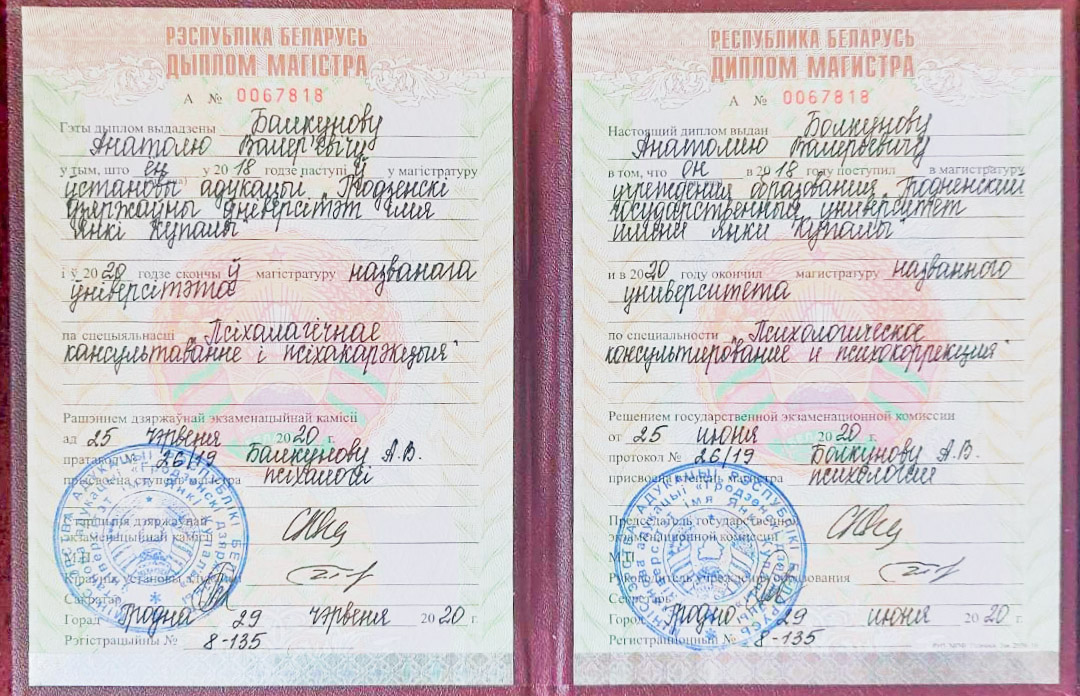 РЭСПУБЛІКА БЕЛАРУСЬ
ДЫПЛОМ МАГІСТРА
А № 0067818
Гэты дыплом выдадзены Балкунову
Анатолю Валер'евічу
у тым, што ён у 2018 годзе паступіў у магістратуру
установы адукацыі „Гродзенскі
дзяржаўны ўніверсітэт імя
Янкі Купалы"
і ў 2020 годзе скончыў магістратуру названага
ўніверсітэта
па спецыяльнасці „Псіхалагічнае
кансультаванне і псіхакарэкцыя"
Рашэннем дзяржаўнай экзаменацыйнай камісіі
ад 25 чэрвеня 2020 г.
пратакол № 26/19 Балкунову А.В.
прысвоена ступень магістра псіхалогіі
дзяржаўнай
экзаменацыйнай камісіі
М.П.
Кіраўнік установы адукацыі
Сакратар
Горад Гродна 29 чэрвеня 2020 г.
Рэгістрацыйны № 8-135
РЕСПУБЛИКА БЕЛАРУСЬ
ДИПЛОМ МАГИСТРА
А № 0067818
Настоящий диплом выдан Болкунову
Анатолию Валерьевичу
в том, что он в 2018 году поступил в магистратуру
учреждения образования „Гродненский
государственный университет
имени Янки Купалы"
и в 2020 году окончил магистратуру названного
университета
по специальности „Психологическое
консультирование и психокоррекция"
Решением государственной экзаменационной комиссии
от 25 июня 2020 г.
протокол № 26/19 Болкунову А.В.
присвоена степень магистра психологии
Председатель государственной
экзаменационной комиссии
М.П.
Руководитель учреждения образования
Секретарь
Город Гродно 29 июня 2020 г.
Регистрационный № 8-135